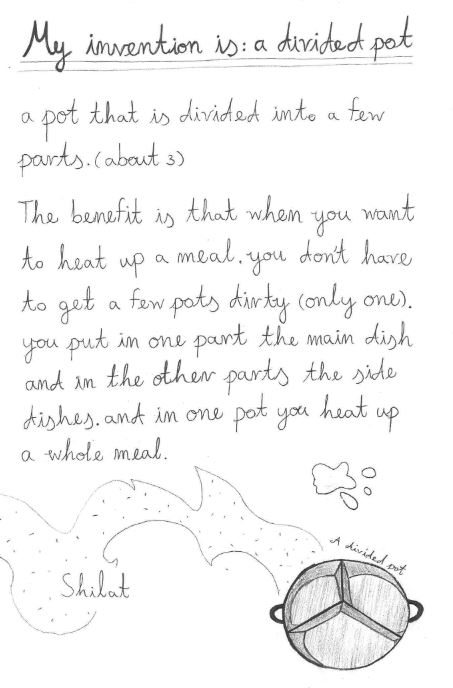 My invention is: a divided pot
a pot that is divided into a few
parts. (about 3)
The benefit is that when you want
to heat up a meal. you don't have
to get a few pots dirty (only one).
you put in one part the main dish
and in the other parts the side
dishes. and in one pot you heat up
a whole meal.
A divided pot
Shilat